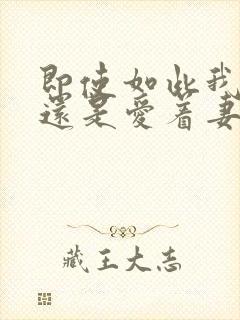 即使如此我
還是愛着妻
藏王大志